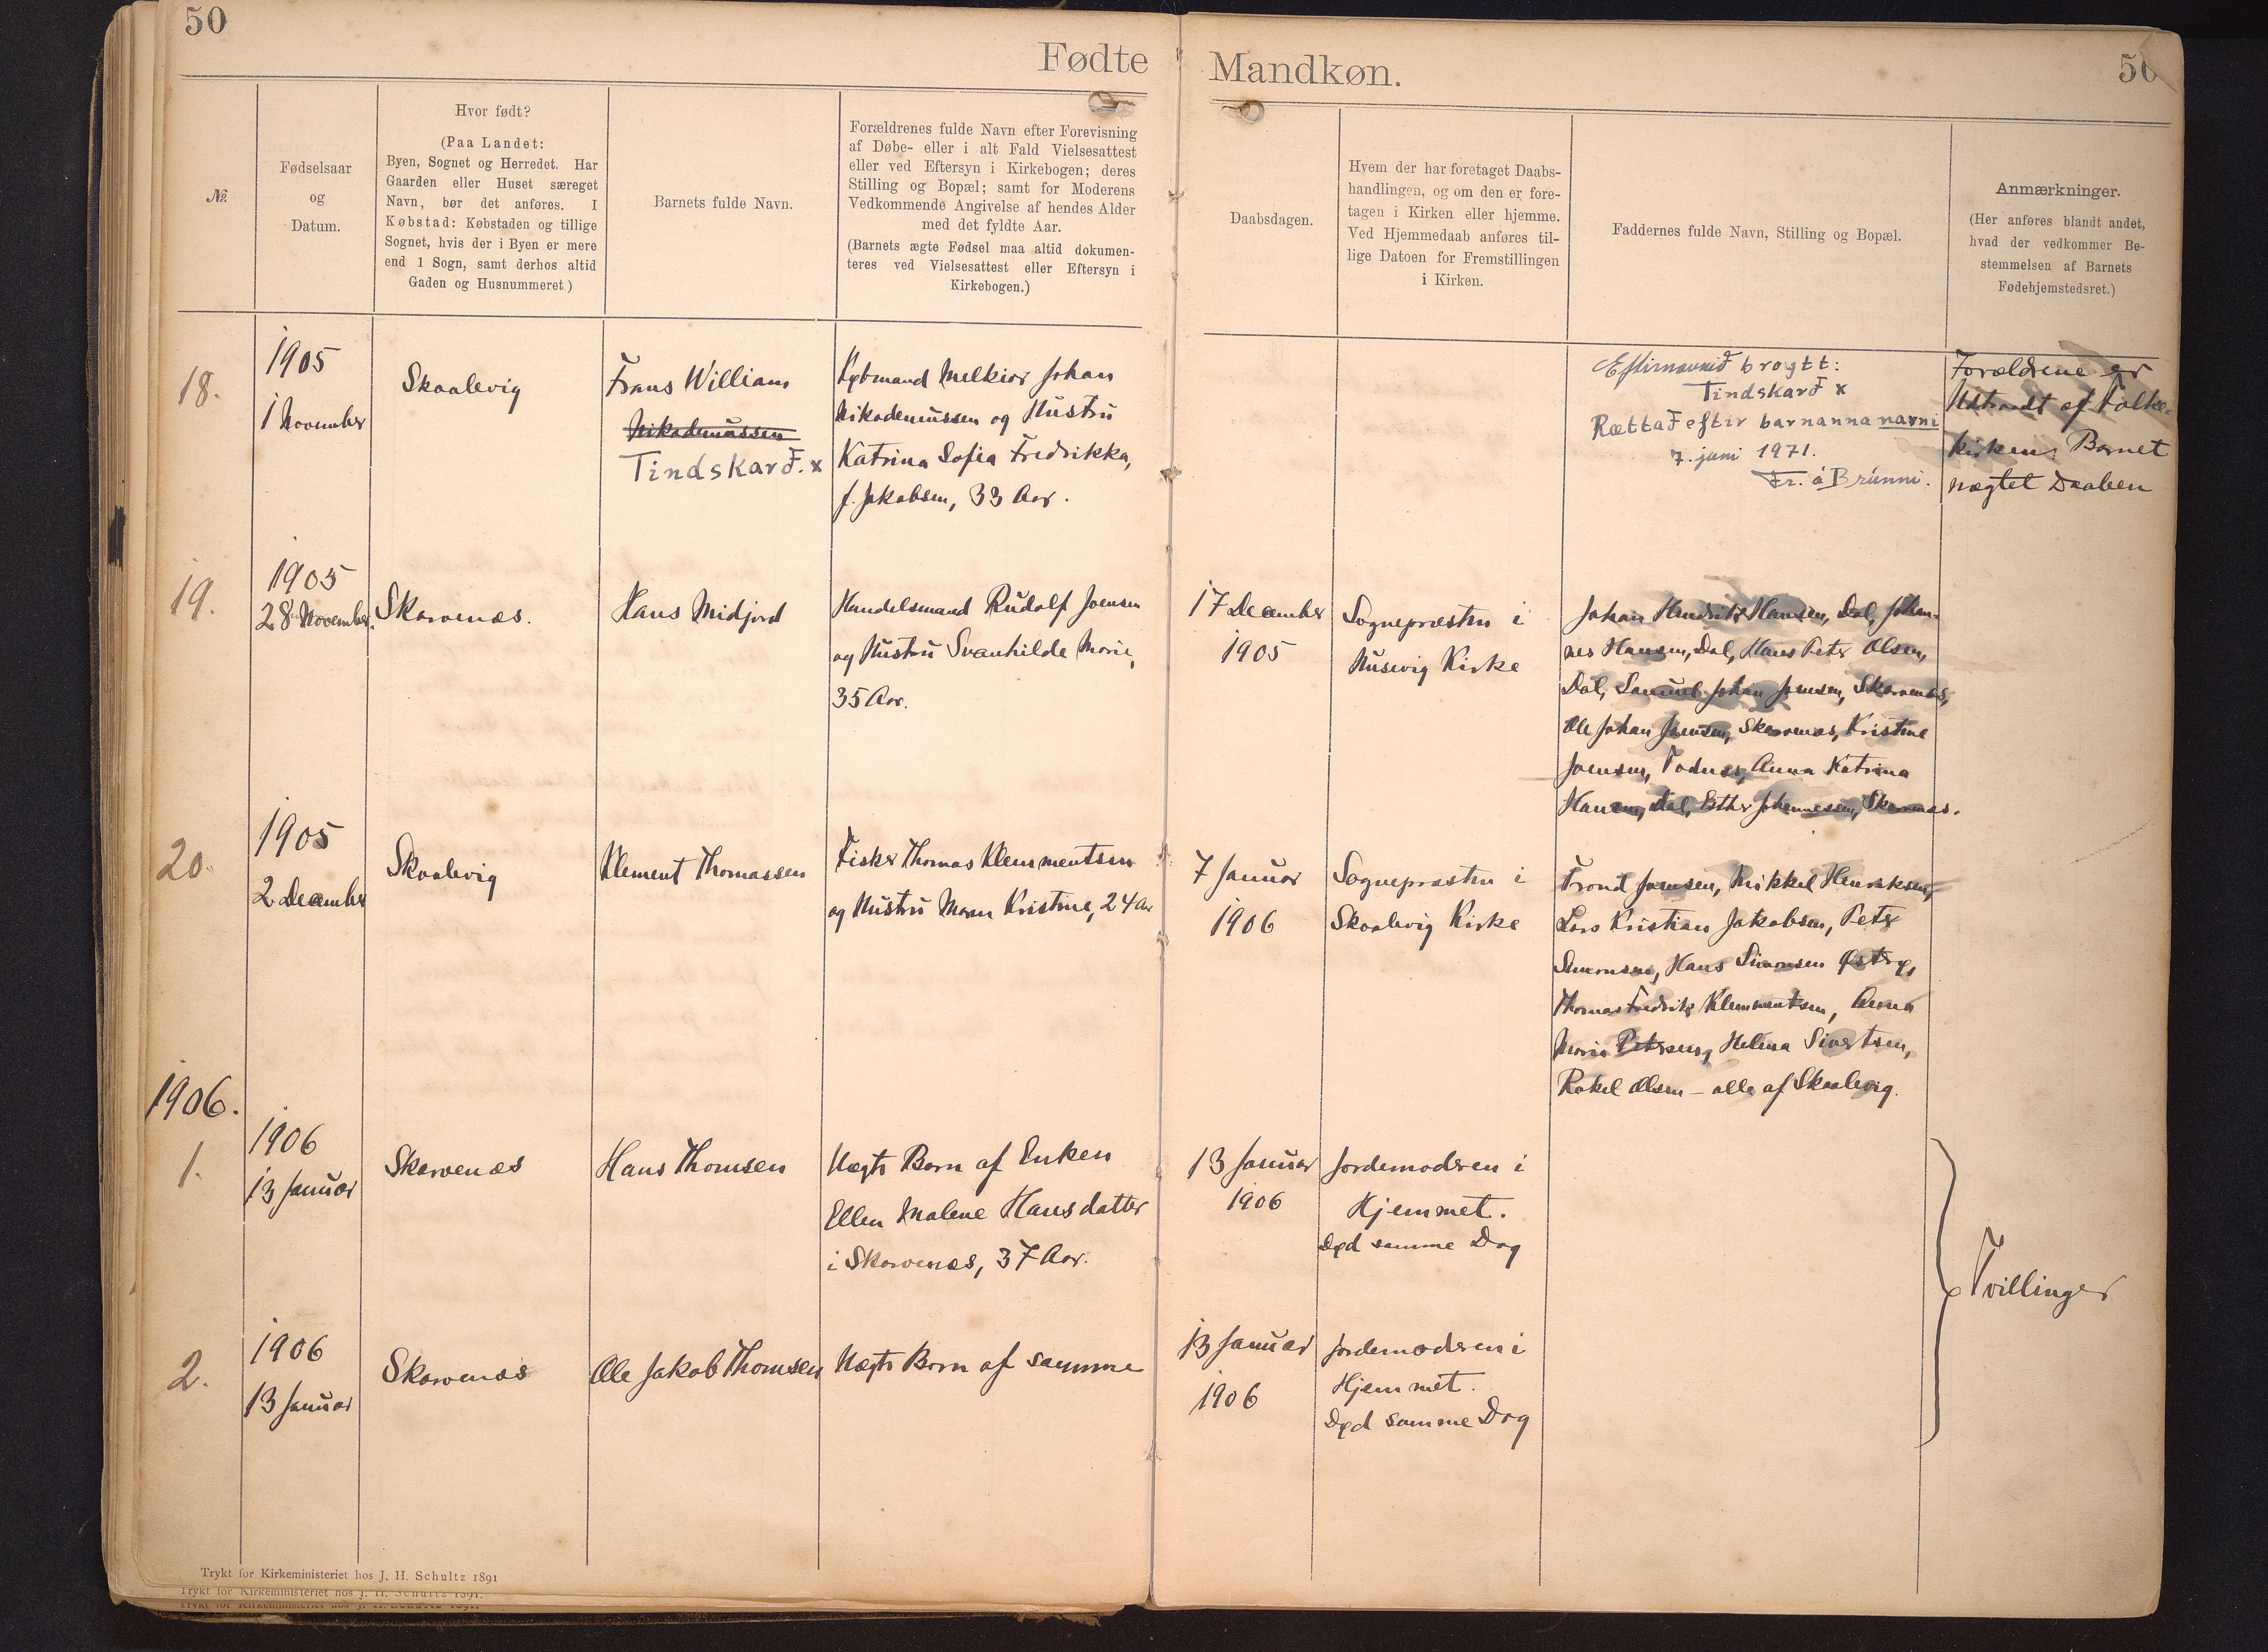 50
Fødte
Mandkøn.
50
№.
Fødselsaar
og
Datum.
Hvor født?
(Paa Landet:
Byen, Sognet og Herredet. Har
Gaarden eller Huset særeget
Navn, bør det anføres. I
Købstad: Købstaden og tillige
Sognet, hvis der i Byen er mere
end 1 Sogn, samt derhos altid
Gaden og Husnummeret.)
Barnets fulde Navn.
Forældrenes fulde Navn efter Forevisning
af Døbe- eller i alt Fald Vielsesattest
eller ved Eftersyn i Kirkebogen; deres
Stilling og Bopæl; samt for Moderens
Vedkommende Angivelse af hendes Alder
med det fyldte Aar.
(Barnets ægte Fødsel maa altid dokumen-
teres ved Vielsesattest eller Eftersyn i
Kirkebogen.)
Daabsdagen.
Hvem der har foretaget Daabs-
handlingen, og om den er fore-
tagen i Kirken eller hjemme.
Ved Hjemmedaab anføres til-
lige Datoen for Fremstillingen
i Kirken.
Faddernes fulde Navn, Stilling og Bopæl.
Anmærkninger.
(Her anføres blandt andet,
hvad der vedkommer Be-
stemmelsen af Barnets
Fødehjemstedsret.)
18.
1905
1 November
Skaalevig
Frans William
Nikodemussen
Tindskarð. x
Købmand Melkior Johan
Nikodemussen og Hustru
Katrina Sofia Fredrikka,
f. Jakobsen, 33 Aar.
Eftirnavnið broytt:
Tindskarð x
Rættað eftir barnanna navni
7. juni 1971.
Fr. á Brúnni.
Forældrene er
Udtraadt af Folke-
kirken. Barnet
nægtet Daaben
19.
1905
28 November.
Skarvenæs.
Hans Midjord
Handelsmand Rudolf Joensen
og Hustru Svanhilde Marie,
35 Aar.
17 December
1905
Sognepræsten i
Husevig Kirke
Johan Hendrik Hansen, Dal, Johan-
nes Hansen, Dal, Hans Peter Olsen,
Dal, Samuel Johan Joensen, Skarvenæs,
Ole Johan Joensen, Skarvenæs, Kristine
Joensen, Anna Katrina
Hansen, Dal, Esther Johannessen, Skarvenæs.
20.
1905
2 December
Skaalevig
Klement Thomassen
Fisker Thomas Klemmentsen
og Hustru Maren Kristine, 24 Aar
7 Januar
1906
Sognepræsten i
Skaalevig Kirke
Trond Joensen, Mikkel Henriksen,
Lars Kristian Jakobsen, Peter
Simonsen, Hans Simonsen
Thomas Fredrik Klemmentsen, Anna
Maria Petersen, Helena Sivertsen,
Rakel Olsen – alle af Skaalevig.
1906.
1.
1906
13 Januar
Skarvenæs
Hans Thomsen
Uægte Barn af Enken
Ellen Malene Hansdatter
i Skarvenæs, 37 Aar.
13 Januar
1906
Jordemoderen i
Hjemmet.
Død samme Dag
Tvillinger
2.
1906
13 Januar
Skarvenæs
Ole Jakob Thomsen
Uægte Barn af samme
13 Januar
1906
Jordemoderen i
Hjemmet.
Død samme Dag
Trykt for Kirkeministeriet hos J. H. Schultz 1891
Trykt for Kirkeministeriet hos J. H. Schultz 1891.
Trykt for Kirkeministeriet hos J. H. Schultz 1891.